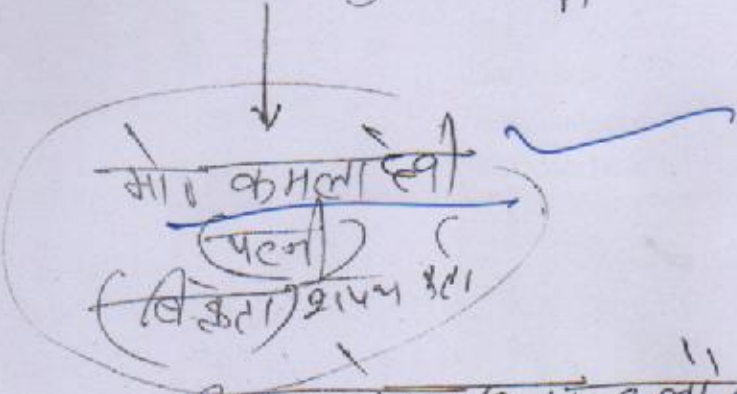 मो॰ कमला देवी
(पत्नी)
(विक्रेता) शपथ कर्ता